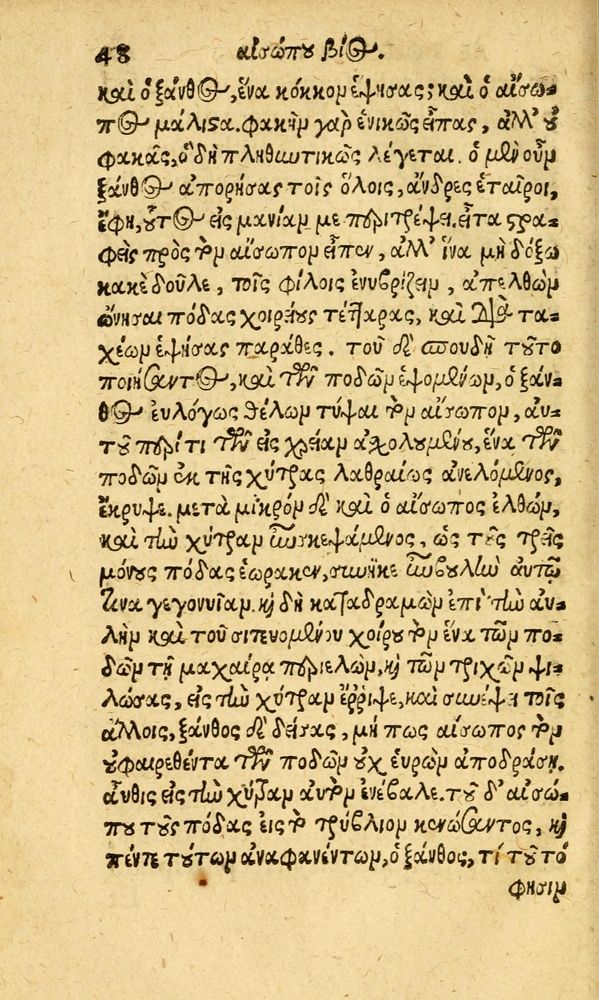 48 αἰσώπου βίος.
καὶ ὁ ξάνθος, ἕνα κόκκον ἕψησας; καὶ ὁ αἴσω-
πος μάλιστα. φακὴν γὰρ ἑνικῶς εἶπας, ἀλλ' οὐ
φακᾶς, ὃ δὴ πληθωτικῶς λέγεται. ὁ μὲν οὖν
ξάνθος ἀπορήσας τοῖς ὅλοις, ἄνδρες ἑταῖροι,
ἔφη, οὗτος εἰς μανίαν με περιτρέψει. εἶτα στρα-
φεὶς πρὸς τὸν αἴσωπον εἶπεν, ἀλλ' ἵνα μὴ δόξω
κακὲ δοῦλε, τοῖς φίλοις ἐνυβρίζειν, ἀπελθὼν
ὤνησαι πόδας χοιρείους τέτταρας, καὶ διὰ τα-
χέων ἑψήσας παράθες. τοῦ δὲ σπουδῇ τοῦτο
ποιήσαντος, καὶ τῶν ποδῶν ἑψομένων, ὁ ξάν-
θος εὐλόγως θέλων τύψαι τὸν αἴσωπον, αὐ-
τοῦ περί τι τῶν εἰς χρείαν ἀσχολουμένου, ἕνα τῶν
ποδῶν ἐκ τῆς χύτρας λαθραίως ἀνελόμενος,
ἔκρυψε. μετὰ μικρὸν δὲ καὶ ὁ αἴσωπος ἐλθών,
καὶ τὴν χύτραν ἐπισκεψάμενος, ὡς τοὺς τρεῖς
μόνους πόδας ἑώρακεν, συνῆκε ἐπιβουλὴν αὐτῷ
τινα γεγονυῖαν. καὶ δὴ καταδραμὼν ἐπὶ τὴν αὐ-
λὴν καὶ τοῦ σιτευομένου χοίρου τὸν ἕνα τῶν πο-
δῶν τῇ μαχαίρᾳ περιελὼν, καὶ τῶν τριχῶν ψι-
λώσας, εἰς τὴν χύτραν ἔρριψε, καὶ συνέψει τοῖς
ἄλλοις, ξάνθος δὲ δείσας, μή πως αἴσωπος τὸν
ὑφαιρεθέντα τῶν ποδῶν οὐχ εὑρὼν ἀποδράσῃ.
αὖθις εἰς τὴν χύτραν αὐτὸν ἐνέβαλε. τοῦ δ' αἰσώ-
που τοὺς πόδας εἰς τὸ τρύβλιον κενώσαντος, καὶ
πέντε τούτων ἀναφανέντων, ὁ ξάνθος, τί τοῦτό
φησιν